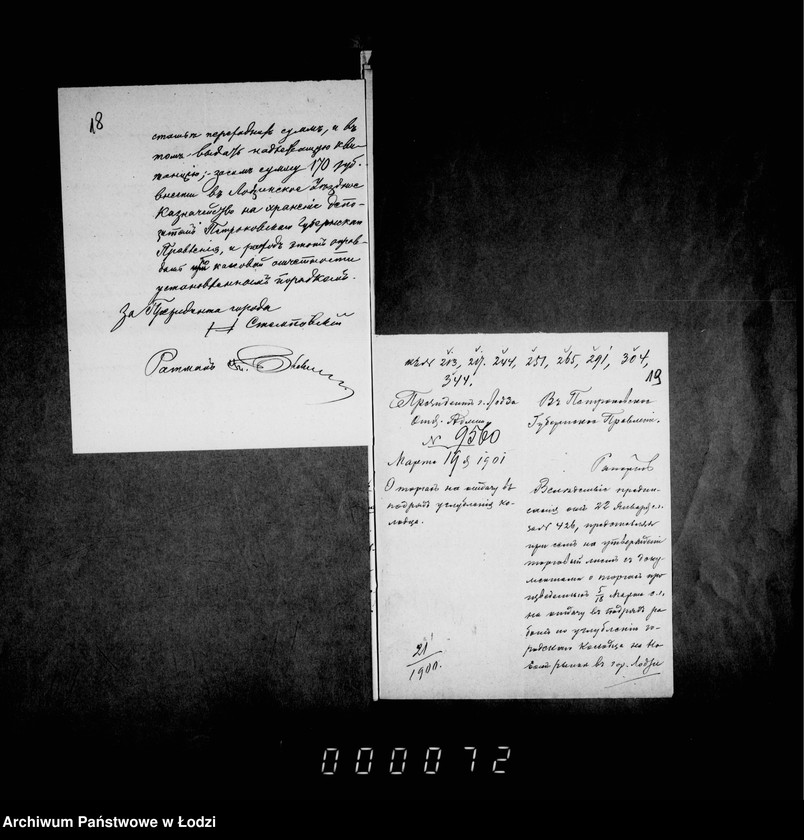 18
сумм, и въ
томъ выдать надлежащую кви-
танцію; засимъ сумму 170 руб.
внести въ Лодзинское Уѣздное
Казначейство на храненіе депо-
зитомъ Петроковскаго Губернскаго
Правленія, и расходъ этотъ оправ-
дать по кассовой отчетности
установленнымъ порядкомъ.
За Президента города
Ратманъ
213, 217, 244, 251, 265, 291, 304,
344.
19
Президентъ г. Лодзи
Отд. Админ.
№ 9560
Марта 19 д. 1901
О торгахъ на отдачу въ
подрядъ углубленія ко-
лодца.
21
1900.
Въ Петроковское
Губернское Правленіе.
Рапортъ
Вслѣдствіе предпи-
санія отъ 22 Января с.г.
за № 426, представляя
при семъ на утвержденіе
торговый листъ съ доку-
ментами о торгахъ про
изведенныхъ 5/18 Марта с.г.
на отдачу въ подрядъ ра-
ботъ по углубленію го-
родского колодца на Но-
вомъ рынкѣ въ гор. Лодзи
000072
Archiwum Państwowe w Łodzi